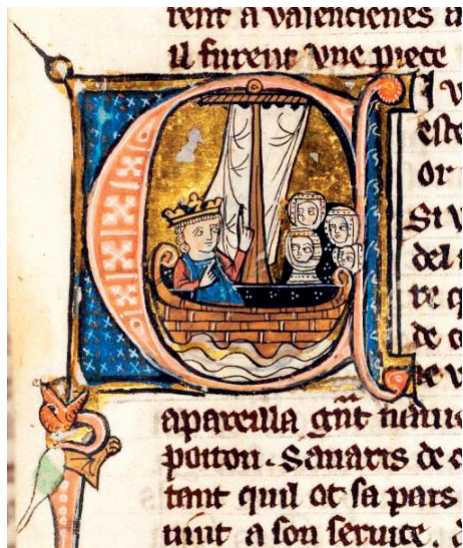 rent a valencienes a
il furent vne piece
I v
este
or
Si v
del
re q
de c
ie v
apareilla gñt nauie
potton. Sauaris de c
tant quil ot sa pars
uint a son seruice.